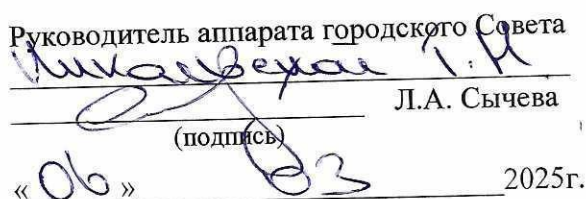 Руководитель аппарата городского Совета
Т.Н
Л.А. Сычева
(подпись)
«06» 03 2025г.